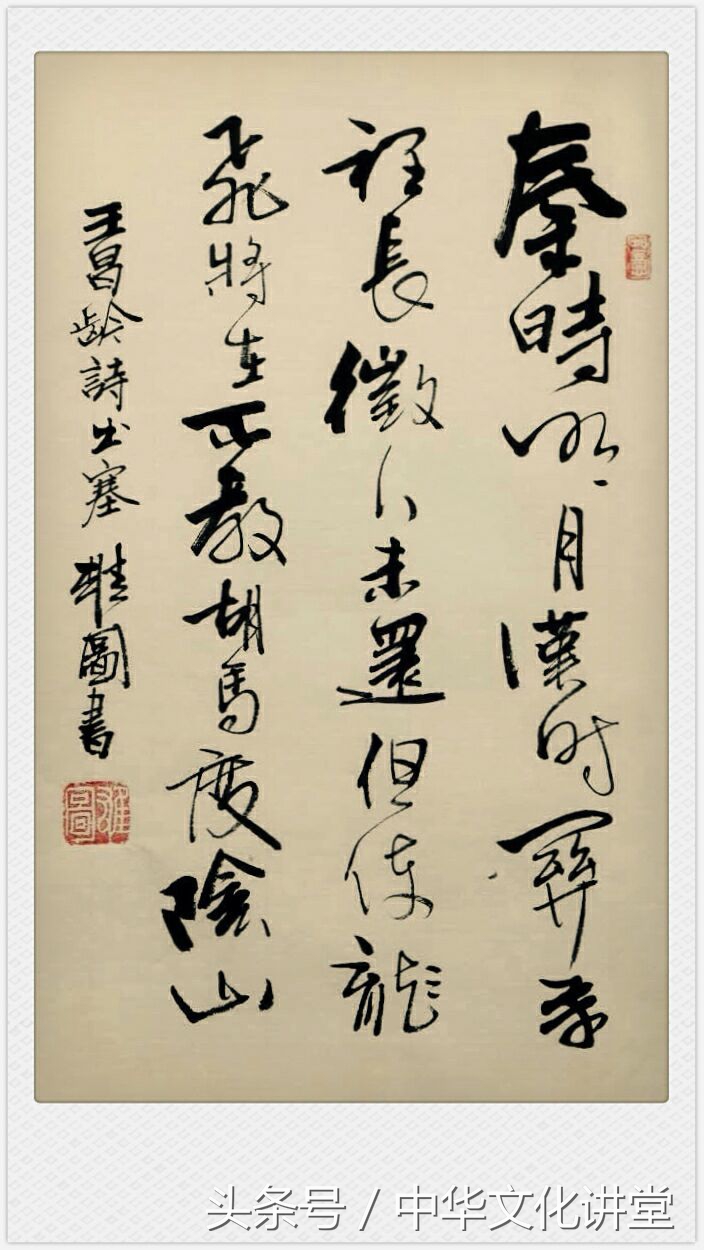 秦時明月漢时關萬
裡長徵人未還但使龍
飛將在不教胡馬度陰山
王昌齡詩出塞 雄圖書
雄圖
头条号 / 中华文化讲堂